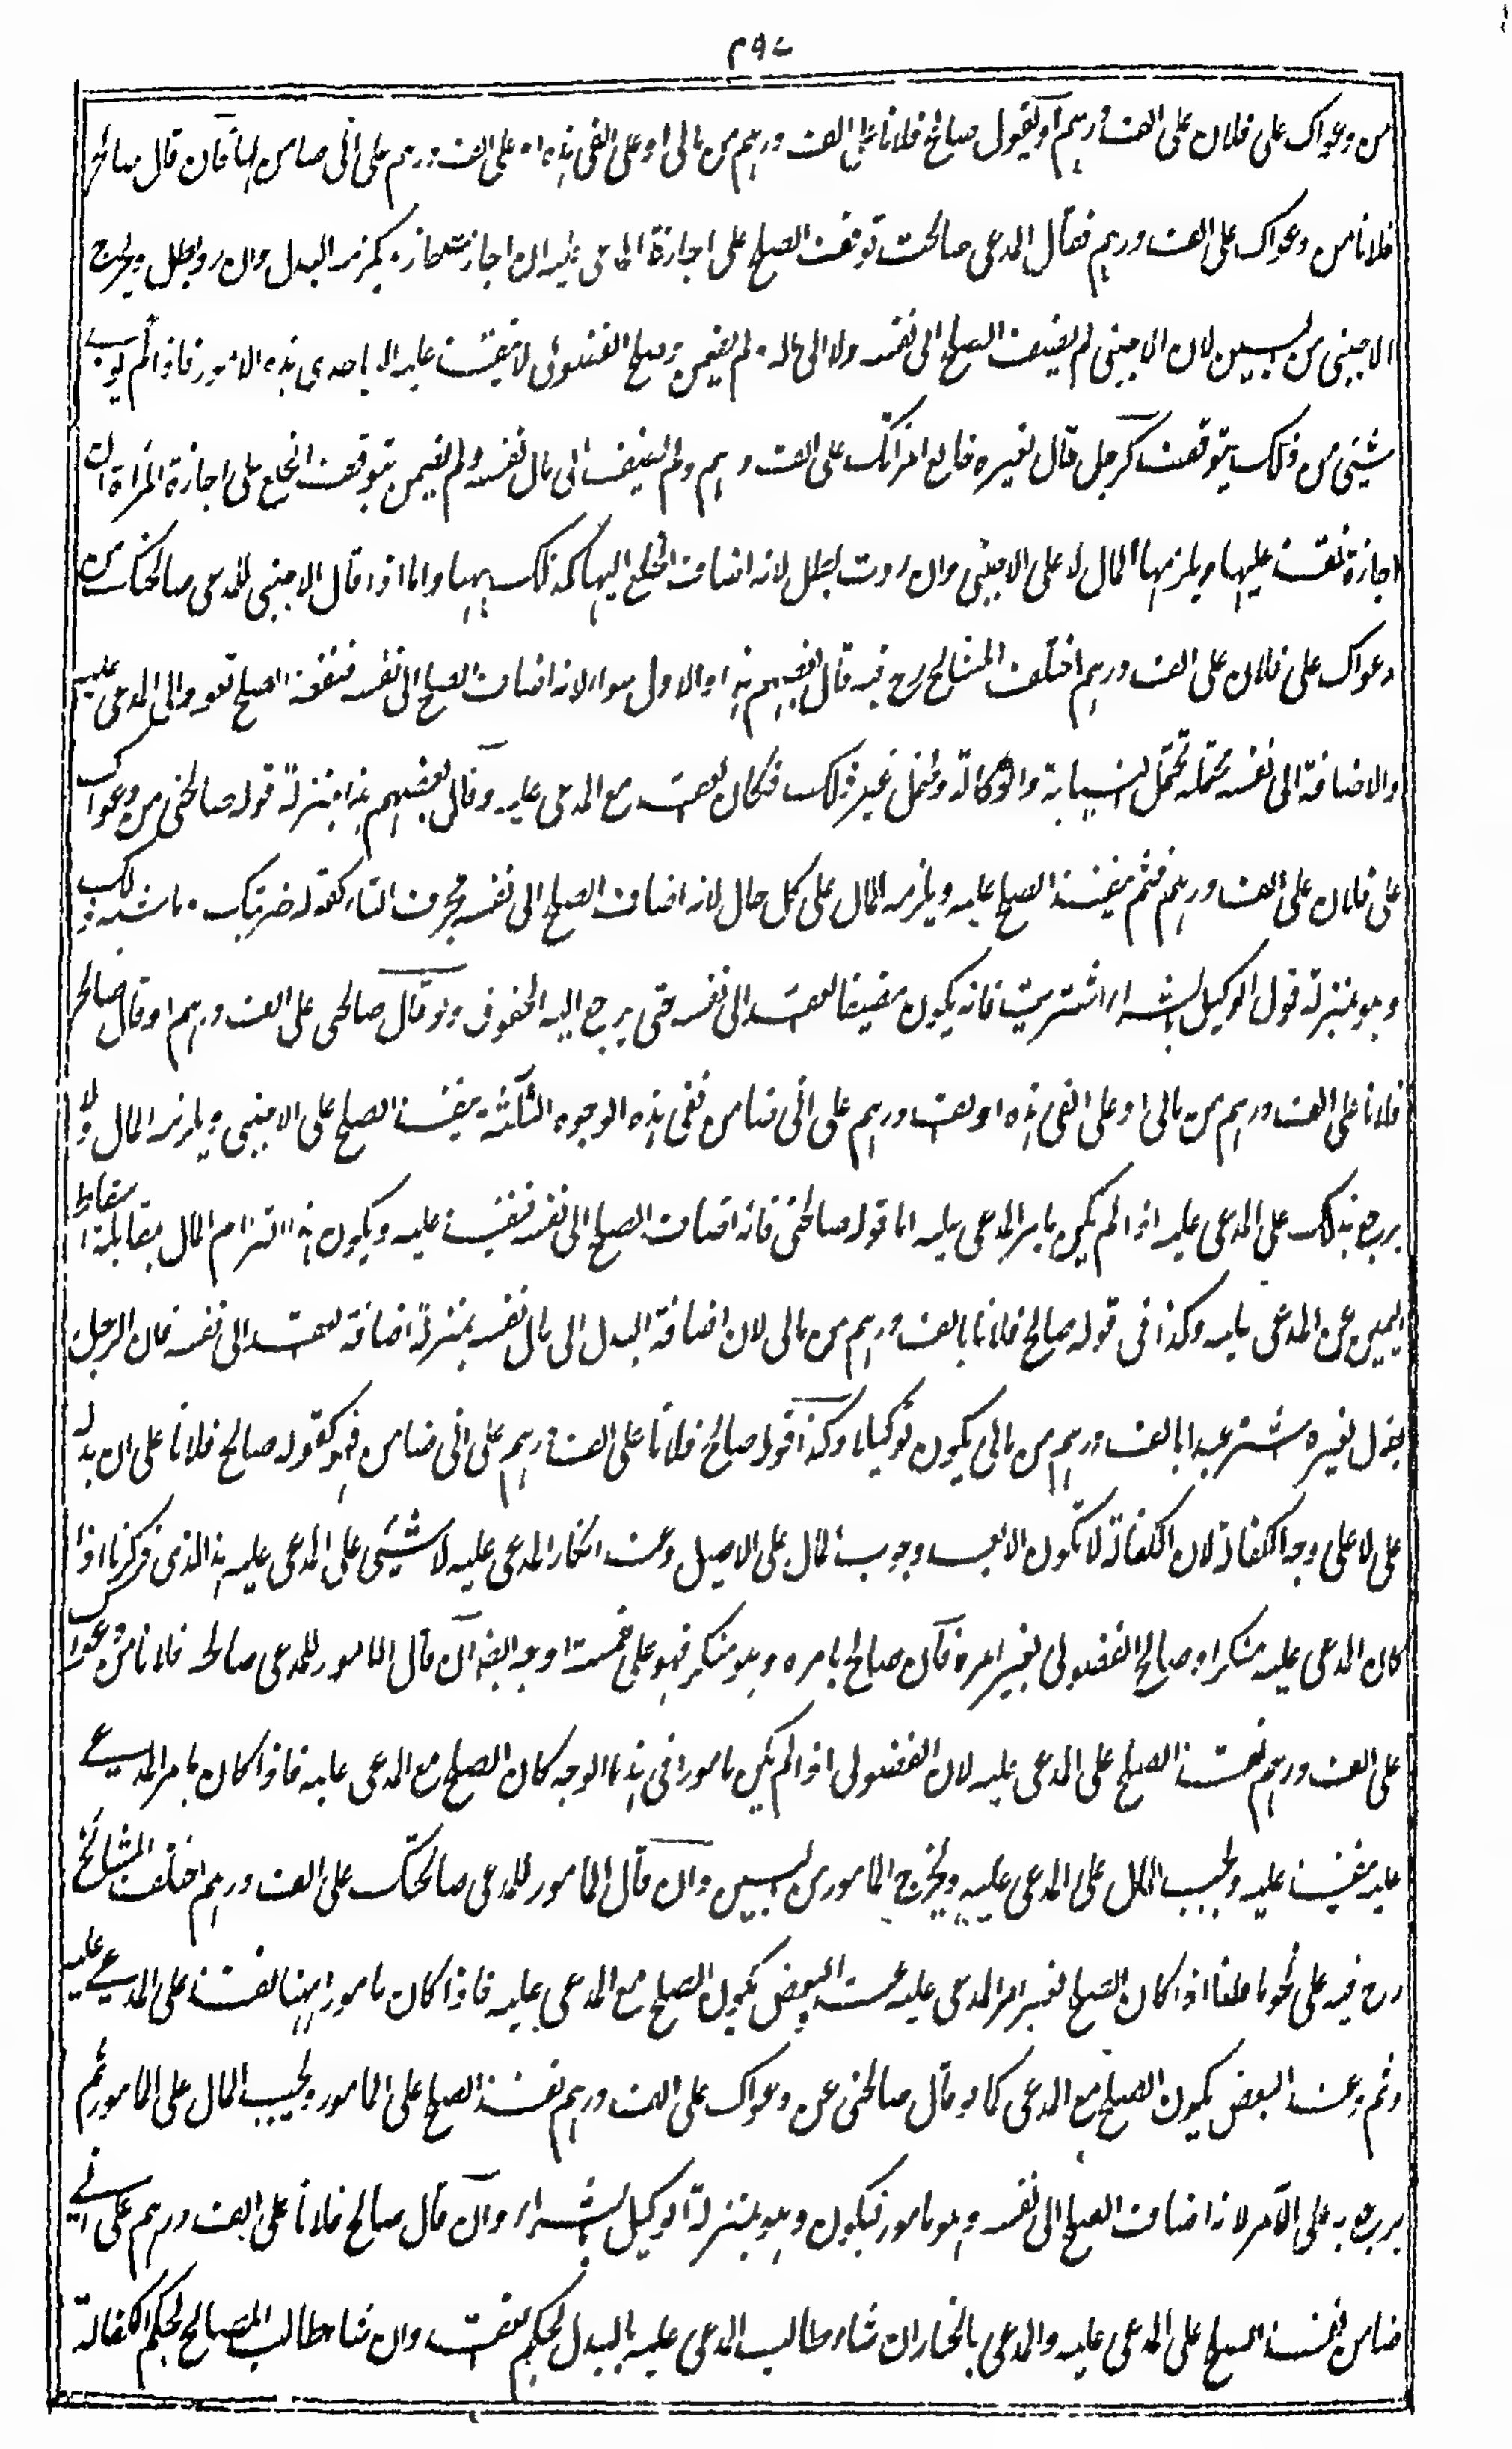 ٤٩٧
من دعواك على فلان على الف درهم او يقول صالح فلانا على الف درهم من مالى او على الفى هذه او على الف درهم على انى ضامن لها فان قال صالح
فلانا من دعواك على الف درهم فقال المدعى صالحت توقف الصلح على اجازة المدعى عليه ان اجاز جاز ويلزمه البدل وان رد بطل ويخرج
الاجنبى من البين لان الاجنبى لم يضف الصلح الى نفسه ولا الى ماله ولم يضمن وصلح الفضولى لا ينفذ عليه الا باحدى هذه الامور فاذا لم يوجد
شيئى من ذلك يتوقف كرجل قال لغيره خالع امرأتك على الف درهم ولم يضف الى مال نفسه ولم يضمن يتوقف الخلع على اجازة المرأة ان
اجازت نفذ عليها ويلزمها المال لا على الاجنبى وان ردت بطل لانه اضاف الخلع اليها كذلك ههنا واما اذا قال الاجنبى للمدعى صالحتك من
دعواك على فلان على الف درهم اختلف المشائخ رح فيه قال بعضهم هذا والاول سواء لانه اضاف الصلح الى نفسه فنفذ الصلح تعود الى المدعى عليه
والاضافة الى نفسه محتملة تحتمل النيابة والوكالة وتحتمل غير ذلك فكان العقد مع المدعى عليه وقال بعضهم هذا بمنزلة قوله صالحنى من دعواك
على فلان على الف درهم فثم ينفذ الصلح عليه ويلزمه المال على كل حال لانه اضاف الصلح الى نفسه بحرف التاء كقوله ضربتك وما اشبه ذلك
وهو بمنزلة قول الوكيل بالشراء اشتريت فانه يكون مضيفا العقد الى نفسه حتى يرجع اليه الحقوق ولو قال صالحنى على الف درهم او قال صالح
فلانا على الف درهم من مالى او على الفى هذه او بالف درهم على انى ضامن ففى هذه الوجوه الثلثة ينفذ الصلح على الاجنبى ويلزمه المال ولا
يرجع بذلك على المدعى عليه اذا لم يكن بامر المدعى عليه اما قوله صالحنى فانه اضاف الصلح الى نفسه فينفذ عليه ويكون هذا التزام المال بمقابلة اسقاط
اليمين عن المدعى عليه وكذا فى قوله صالح فلانا بالف درهم من مالى لان اضافة البدل الى مال نفسه بمنزلة اضافة العقد الى نفسه فان الرجل
يقول لغيره اشتر عبدا بالف درهم من مالى يكون توكيلا وكذا قوله صالح فلانا على الف درهم على انى ضامن فهو كقوله صالح فلانا على ان بدله
على لا على وجه الكفالة لان الكفالة لا تكون الا بعد وجوب المال على الاصيل وعند انكار المدعى عليه لا شيئى على المدعى عليه هذا الذى ذكرنا اذا
كان المدعى عليه منكرا وصالح الفضولى بغير امره فان صالح بامره وهو منكر فهو على خمسة اوجه ايضا ان قال المامور للمدعى صالح فلانا من دعواك
على الف درهم نفذ الصلح على المدعى عليه لان الفضولى اذا لم يكن مامورا فى هذا الوجه كان الصلح مع المدعى عليه فاذا كان بامر المدعى
عليه ينفذ عليه ويجب المال على المدعى عليه ويخرج المامور من البين وان قال المامور للمدعى صالحتك على الف درهم اختلف المشائخ
رح فيه على نحو ما قلنا اذا كان الصلح بغير امر المدعى عليه عند البعض يكون الصلح مع المدعى عليه فاذا كان مامورا ههنا نفذ على المدعى عليه
وثم وعند البعض يكون الصلح مع المدعى كما لو قال صالحنى عن دعواك على الف درهم نفذ الصلح على المامور ويجب المال على المامور ثم
يرجع به على الآمر لانه اضاف الصلح الى نفسه وهو مامور فيكون وهو بمنزلة الوكيل بالشراء وان قال صالح فلانا على الف درهم على انى
ضامن نفذ الصلح على المدعى عليه والمدعى بالخيار ان شاء طالب المدعى عليه بالبدل لحكم العقد وان شاء طالب المصالح لحكم الكفالة